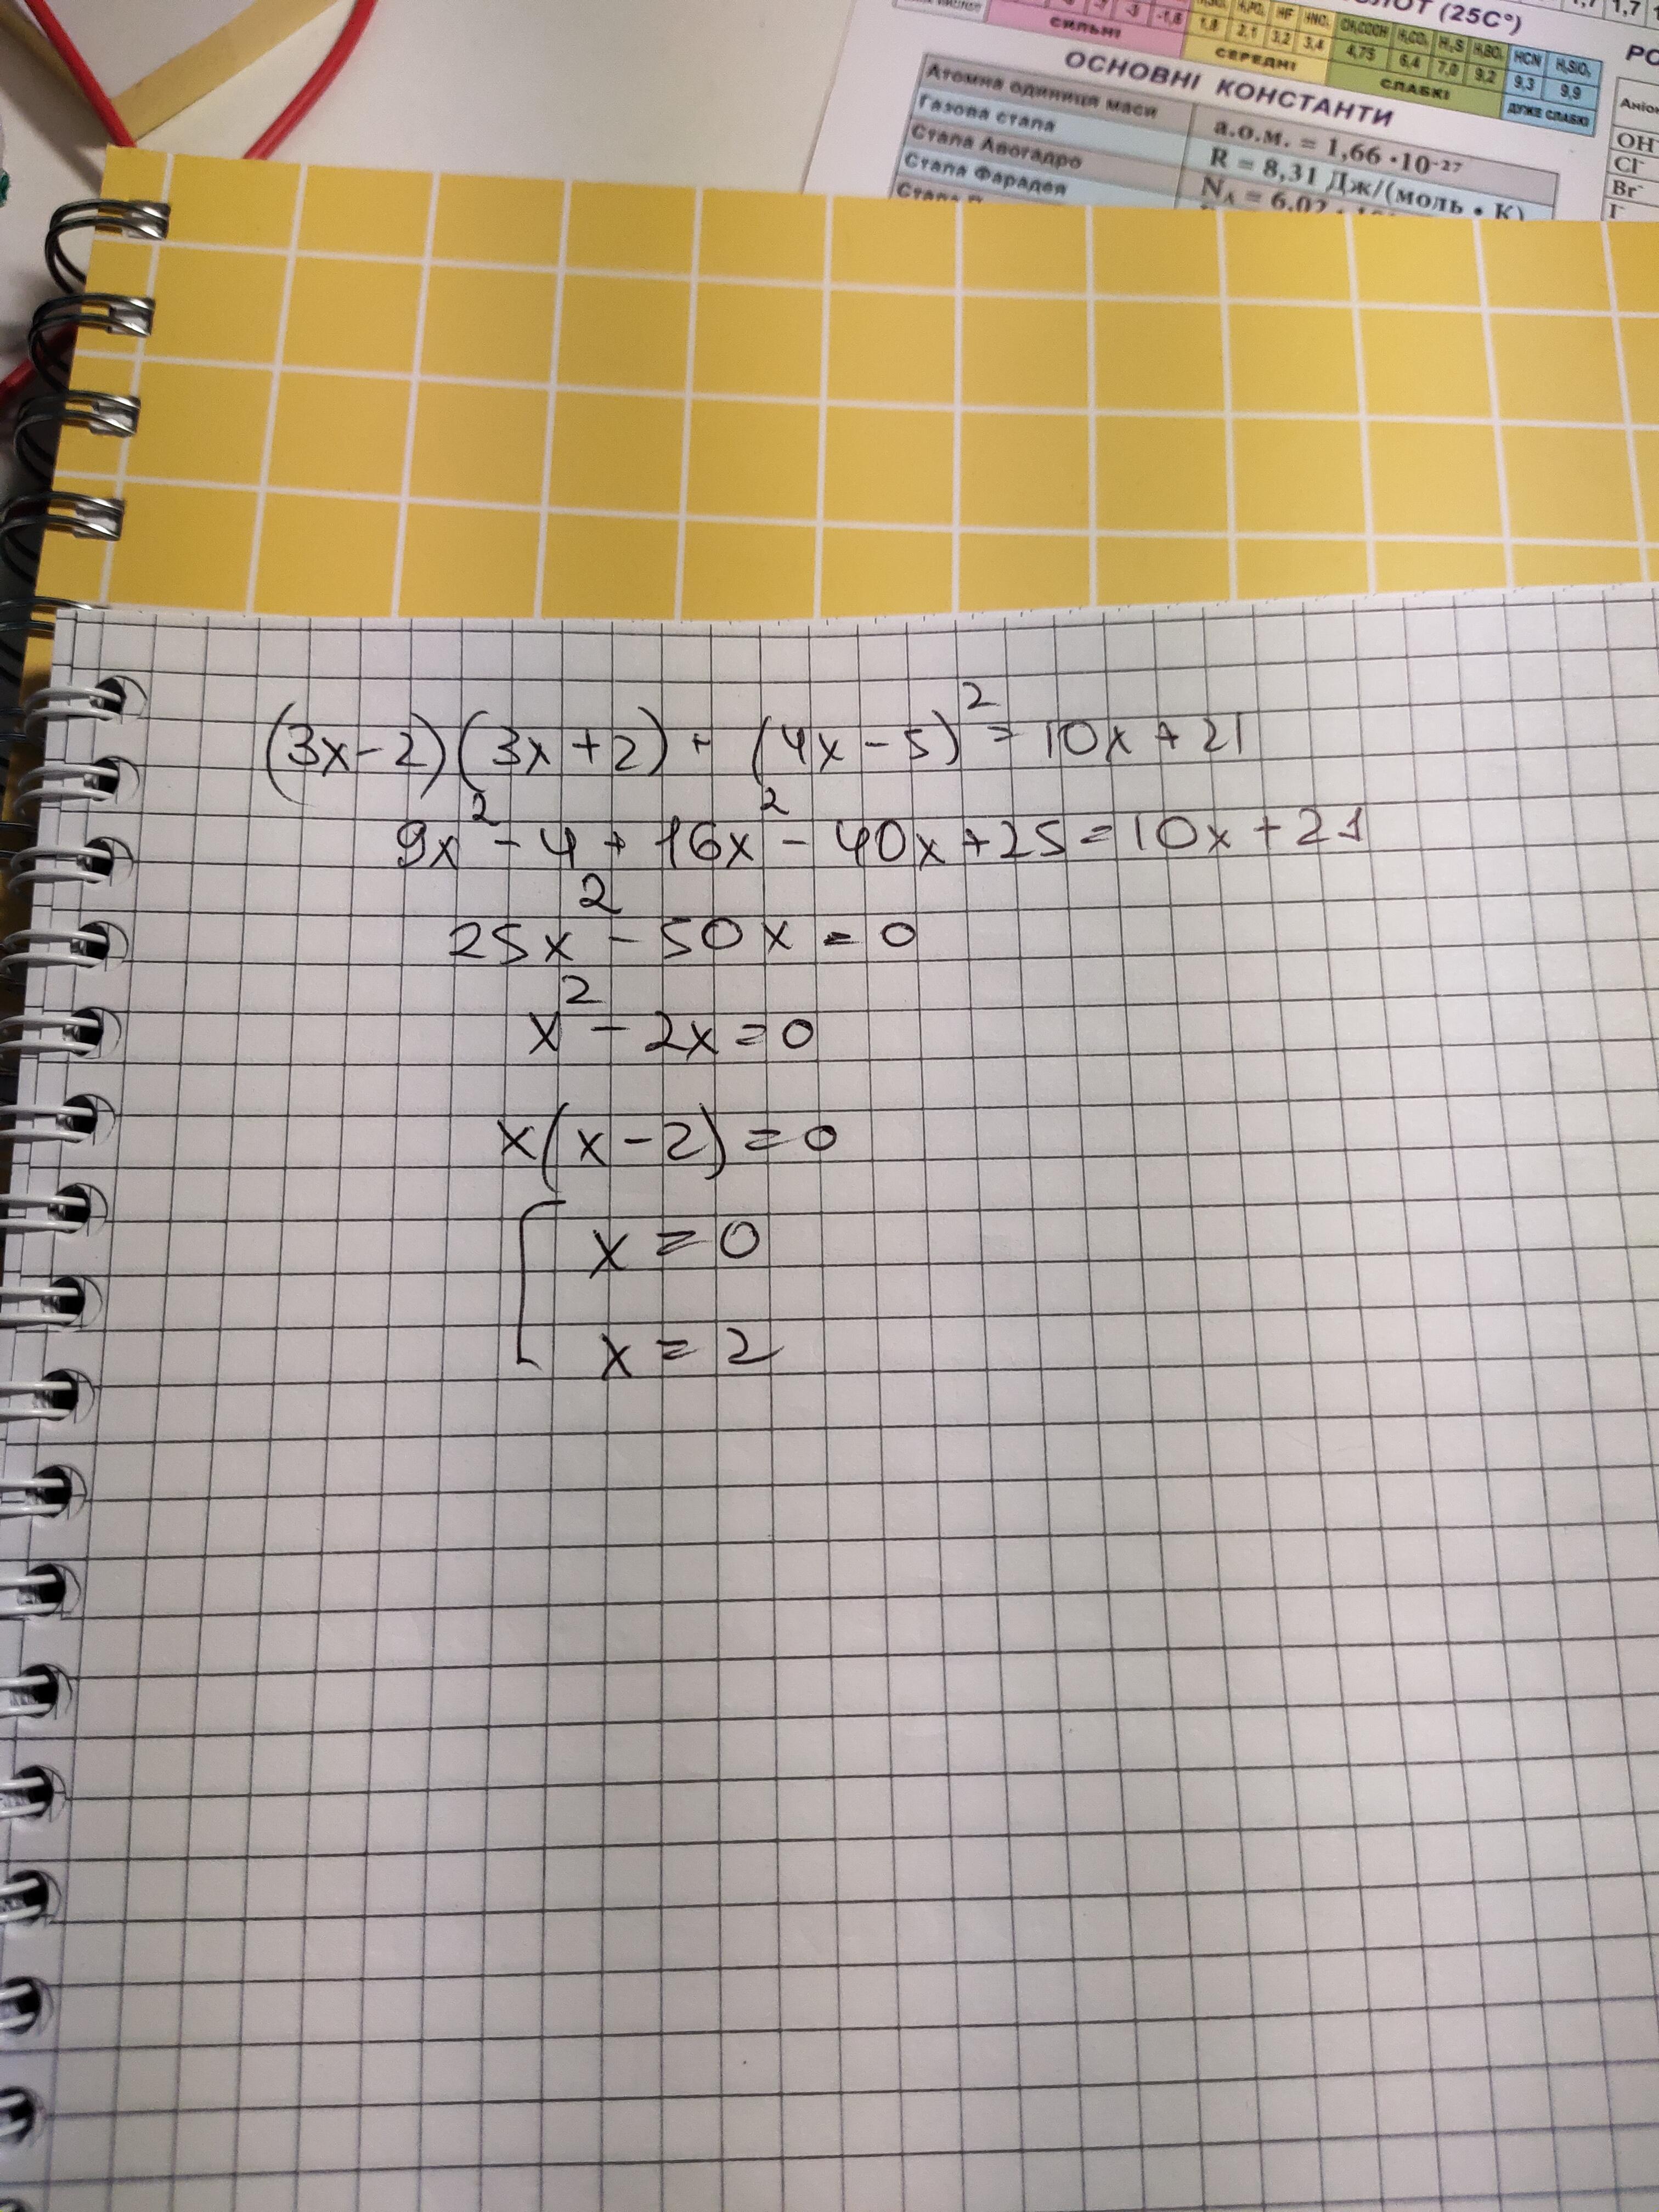 1,7 1,7
СИЛЬНІ
1,8 2,1 3,2 3,4 4,75 6,4 7,0 9,2 9,3 9,9
HF HNO₂ CH₃COOH H₂CO₃ H₂S H₃BO₃ HCN H₂SiO₃
СЕРЕДНІ
СЛАБКІ
ДУЖЕ СЛАБКІ
(25C°)
ОСНОВНІ КОНСТАНТИ
Атомна одиниця маси а.о.м. = 1,66 •10⁻²⁷
Газова стала R = 8,31 Дж/(моль • К)
Стала Авогадро N_A = 6,02
Стала Фарадея
Стала
OH⁻
Cl⁻
Br⁻
I⁻
(3x-2)(3x+2) + (4x-5)² = 10x+21
9x²-4+16x²-40x+25=10x+21
25x²-50x=0
x²-2x=0
x(x-2)=0
[ x=0
x=2